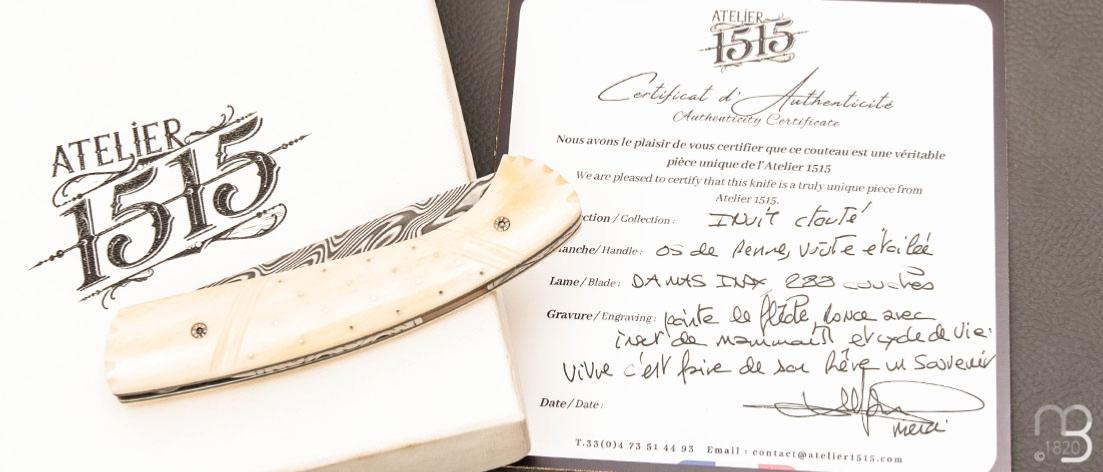 ATELIER
1515
ATELIER
1515
Certificat d'Authenticité
Authenticity Certificate
Nous avons le plaisir de vous certifier que ce couteau est une véritable
pièce unique de l'Atelier 1515
We are pleased to certify that this knife is a truly unique piece from
Atelier 1515.
ction / Collection : INUIT clouté
anche / Handle : os de Renne, voûte étoilée
Lame / Blade : DAMAS INOX 288 couches
Gravure / Engraving : pointe de flèche, ronce avec
de mammouth et cycle de vie.
Vivre c'est faire de son Rêve un Souvenir
Date / Date :
merci
T.33(0)4 73 51 44 93 Email : contact@atelier1515.com
mB
©1820